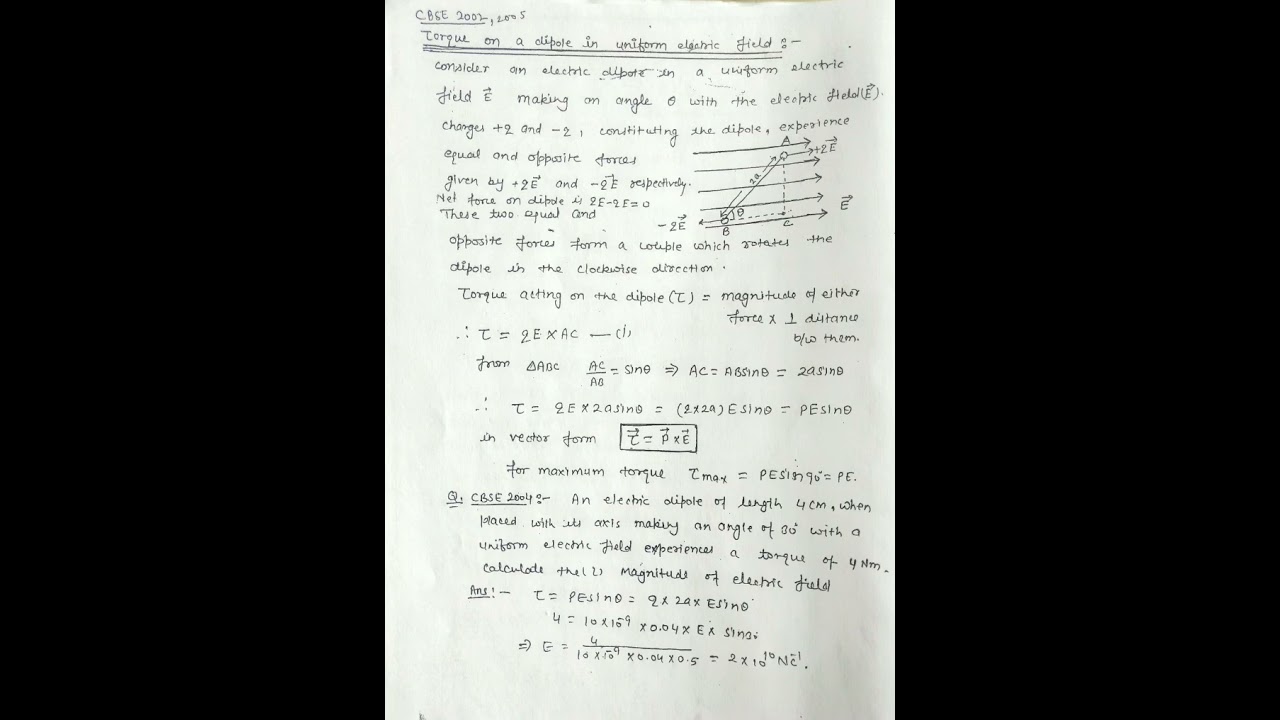 CBSE 2002, 2005
Torque on a dipole in uniform electric field :-
consider an electric dipole in a uniform electric
field E⃗ making an angle θ with the electric field(E⃗).
charges +q and -q, constituting the dipole, experience
equal and opposite forces
given by +qE⃗ and -qE⃗ respectively.
Net force on dipole is qE-qE=0
These two equal and
A
+qE⃗
2a
θ
E⃗
-qE⃗
B
C
opposite forces form a couple which rotates the
dipole in the clockwise direction.
Torque acting on the dipole (τ) = magnitude of either
force x ⊥ distance
b/w them.
∴ τ = qE x AC —(i)
from ΔABC AC/AB = sinθ ⇒ AC = ABsinθ = 2asinθ
∴ τ = qE x 2asinθ = (q x 2a) E sinθ = PEsinθ
in vector form τ⃗ = P⃗ x E⃗
for maximum torque τmax = PEsin90° = PE.
Q. CBSE 2004:- An electric dipole of length 4cm, when
placed with its axis making an angle of 30° with a
uniform electric field experiences a torque of 4 Nm.
calculate the (i) magnitude of electric field
Ans:- τ = PEsinθ = q x 2a x Esinθ
4 = 10 x 10⁻⁹ x 0.04 x E x sin30
⇒ E = 4/(10 x 10⁻⁹ x 0.04 x 0.5) = 2 x 10¹⁰ NC⁻¹.